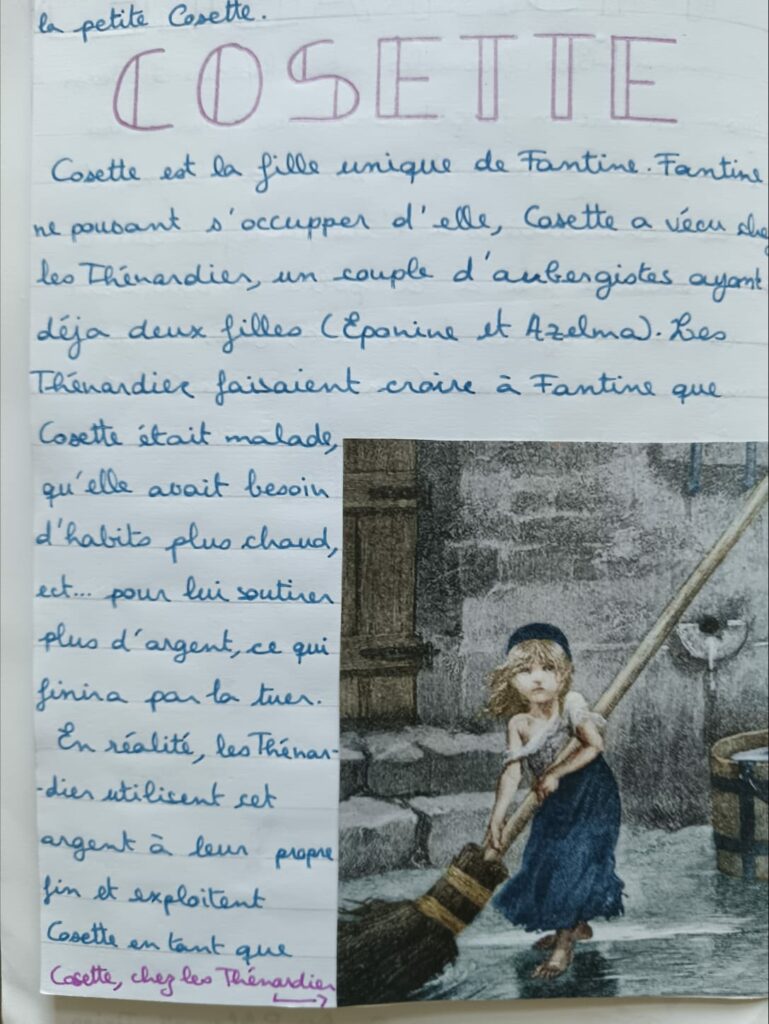 la petite Cosette.
COSETTE
Cosette est la fille unique de Fantine. Fantine
ne pouvant s'occupper d'elle, Cosette a vécu chez
les Thénardier, un couple d'aubergistes ayant
déja deux filles (Eponine et Azelma). Les
Thénardier faisaient croire à Fantine que
Cosette était malade,
qu'elle avait besoin
d'habits plus chaud,
ect... pour lui soutirer
plus d'argent, ce qui
finira par la tuer.
En réalité, les Thénar-
-dier utilisent cet
argent à leur propre
fin et exploitent
Cosette en tant que
Cosette, chez les Thénardier